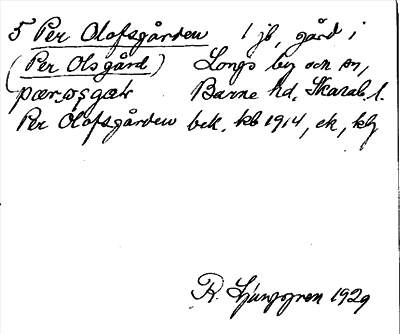 5 Per Olofsgården 1 jb, gård i
(Per Olsgård) Longs by och sn,
pærosgaɽ Barne hd, Skarab. l.
Per Olofsgården bek. kb 1914, ek, kbg
R. Ljunggren 1929